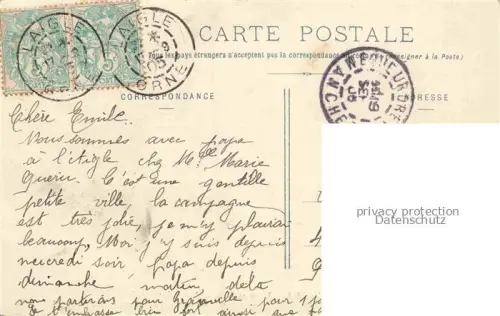 CARTE POSTALE
Tous les pays étrangers n'acceptent pas la correspondance au recto (se renseigner à la Poste)
LAIGLE
ORNE
CORRESPONDANCE
ADRESSE
Chère Emile.
Nous sommes avec papa
à l'Aigle chez Mlle Marie
C'est une gentille
petite ville, la campagne
est très jolie, je m'y plairai
beaucoup, Moi j'y suis depuis
mercredi soir, papa depuis
dimanche matin, delà
nous partirons pour Granville pour 1 j
Je t'embrasse bien fort ainsi que
privacy protection
Datenschutz